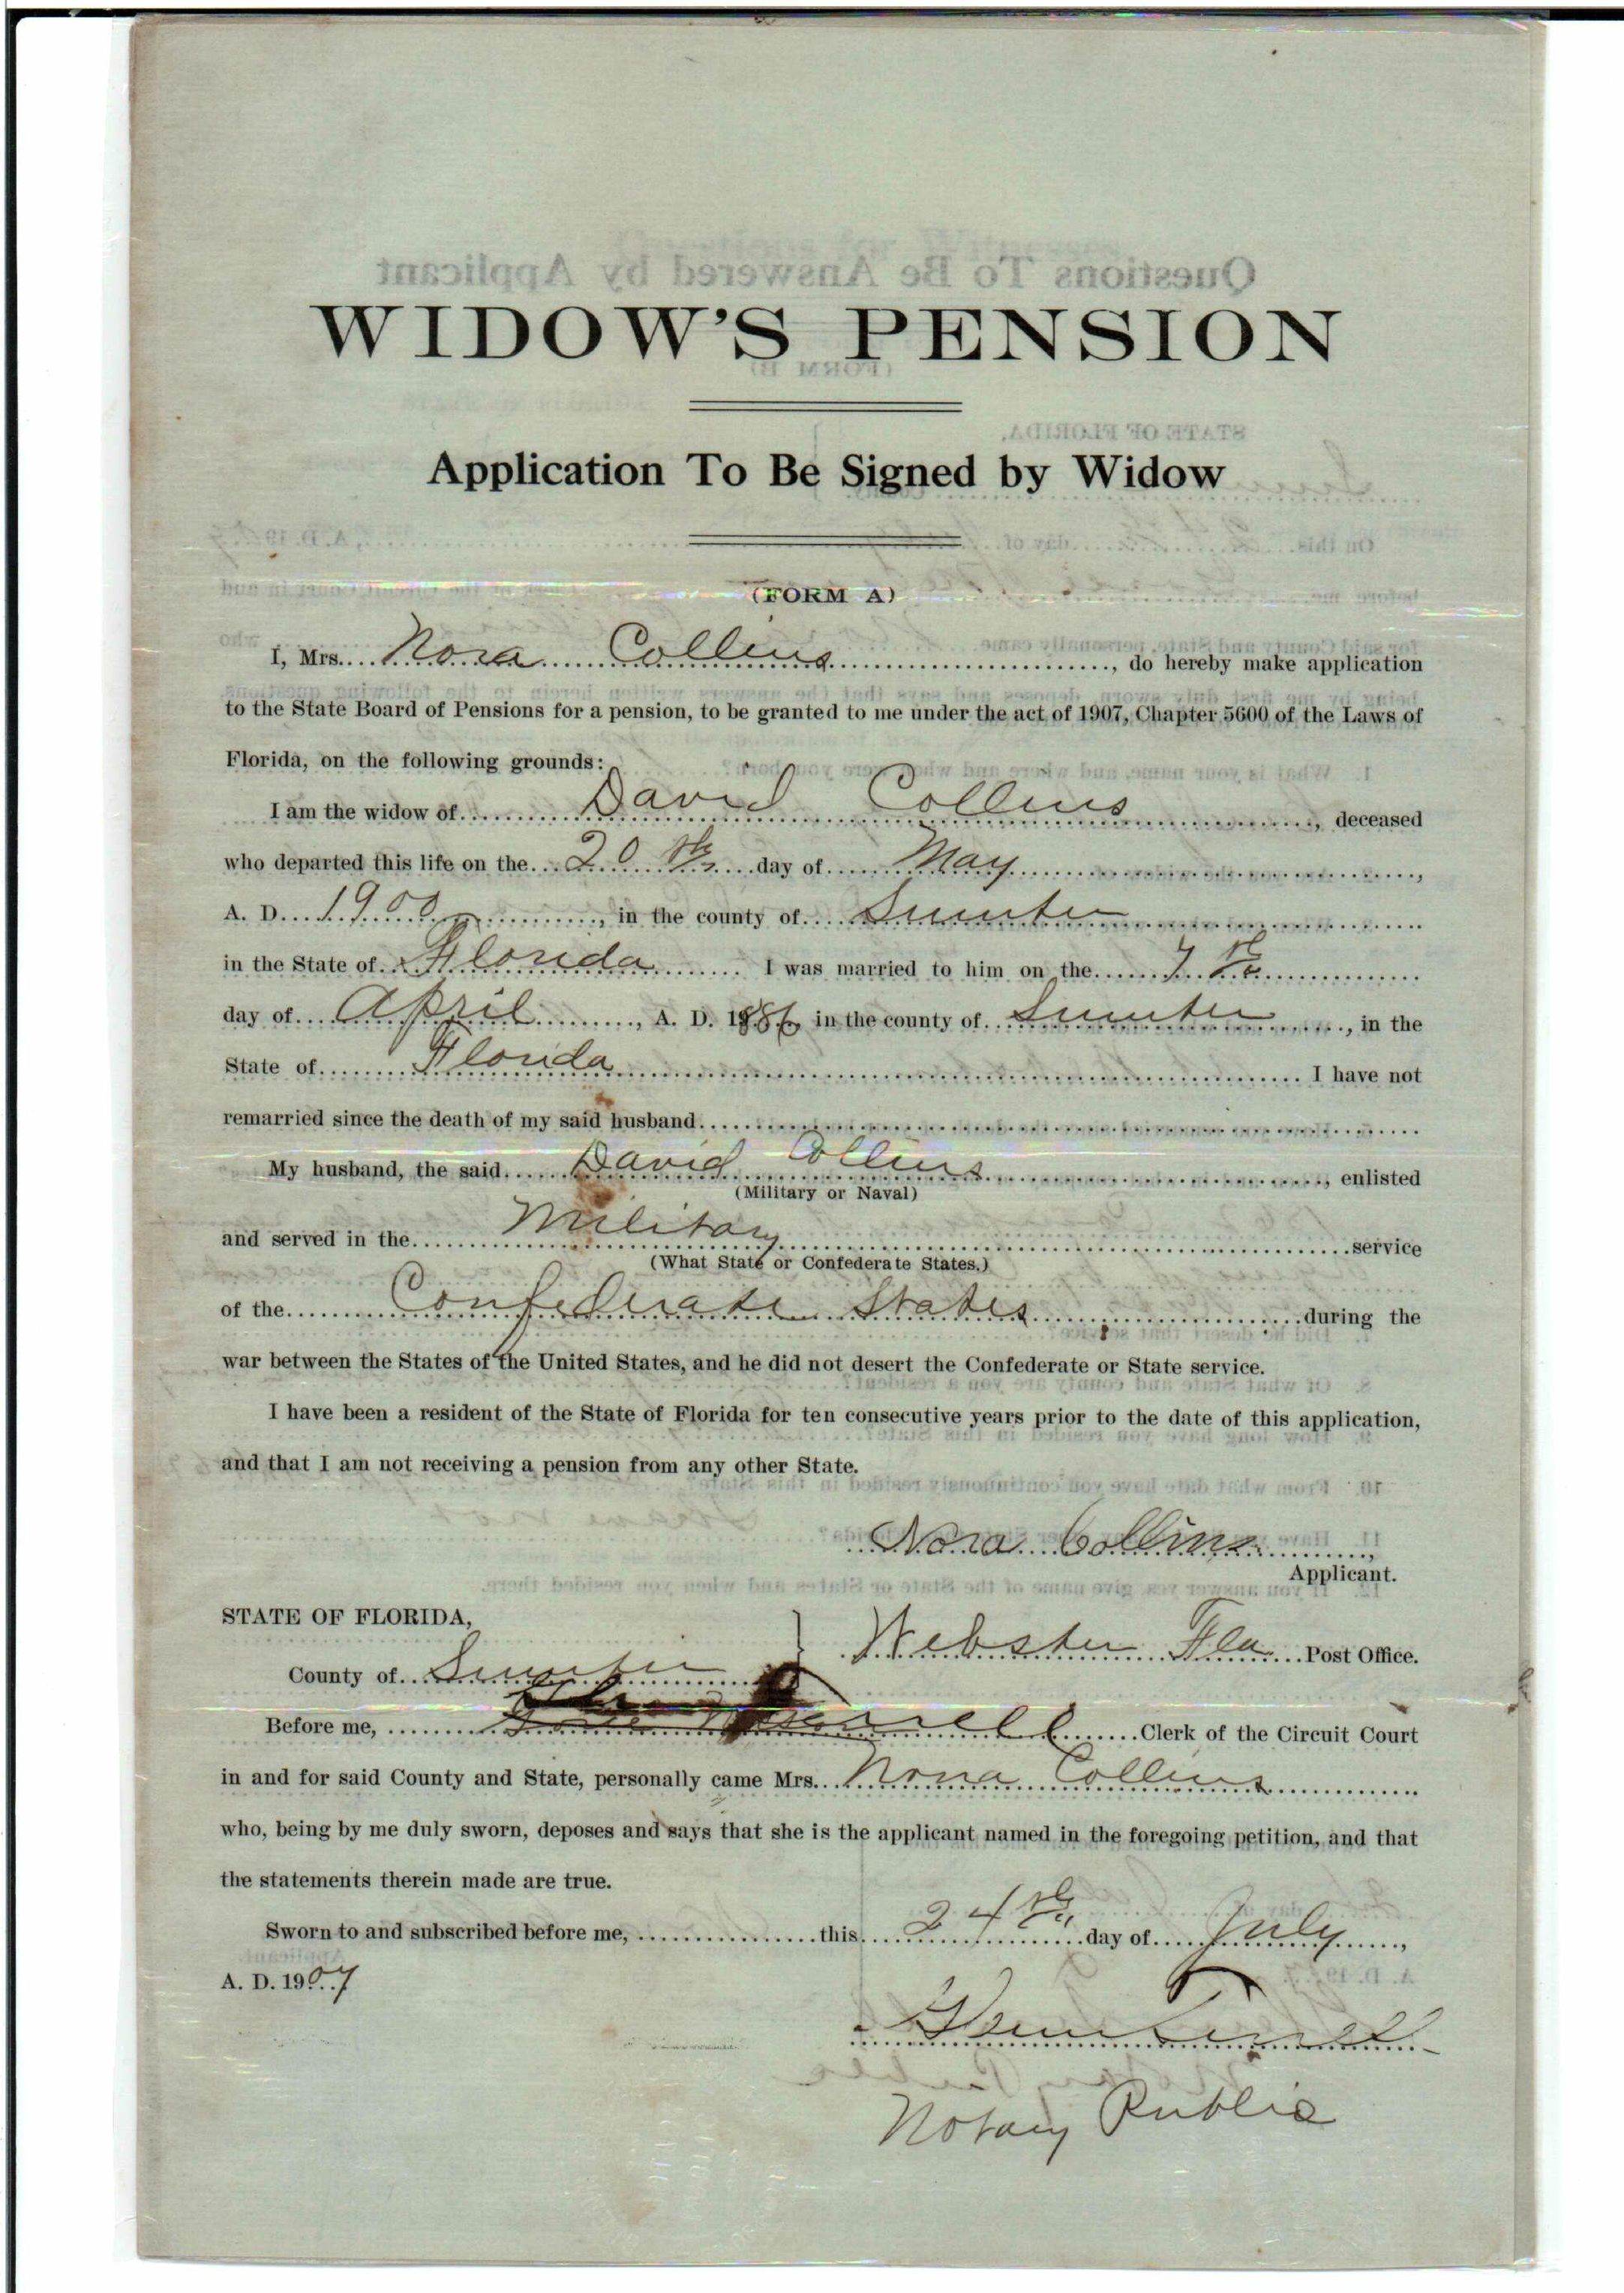 WIDOW'S PENSION
Application To Be Signed by Widow
(FORM A)
I, Mrs. Nora Collins, do hereby make application
to the State Board of Pensions for a pension, to be granted to me under the act of 1907, Chapter 5600 of the Laws of
Florida, on the following grounds:
I am the widow of David Collins, deceased
who departed this life on the 20th day of May,
A. D. 1900, in the county of Sumter
in the State of Florida I was married to him on the 7th
day of April, A. D. 1886 in the county of Sumter, in the
State of Florida I have not
remarried since the death of my said husband
My husband, the said David Collins, enlisted
(Military or Naval)
and served in the Military service
(What State or Confederate States.)
of the Confederate States during the
war between the States of the United States, and he did not desert the Confederate or State service.
I have been a resident of the State of Florida for ten consecutive years prior to the date of this application,
and that I am not receiving a pension from any other State.
Nora Collins,
Applicant.
STATE OF FLORIDA,
Webster Fla Post Office.
County of Sumter
Before me, Clerk of the Circuit Court
in and for said County and State, personally came Mrs. Nora Collins
who, being by me duly sworn, deposes and says that she is the applicant named in the foregoing petition, and that
the statements therein made are true.
Sworn to and subscribed before me, this 24th day of July,
A. D. 1907
Notary Public